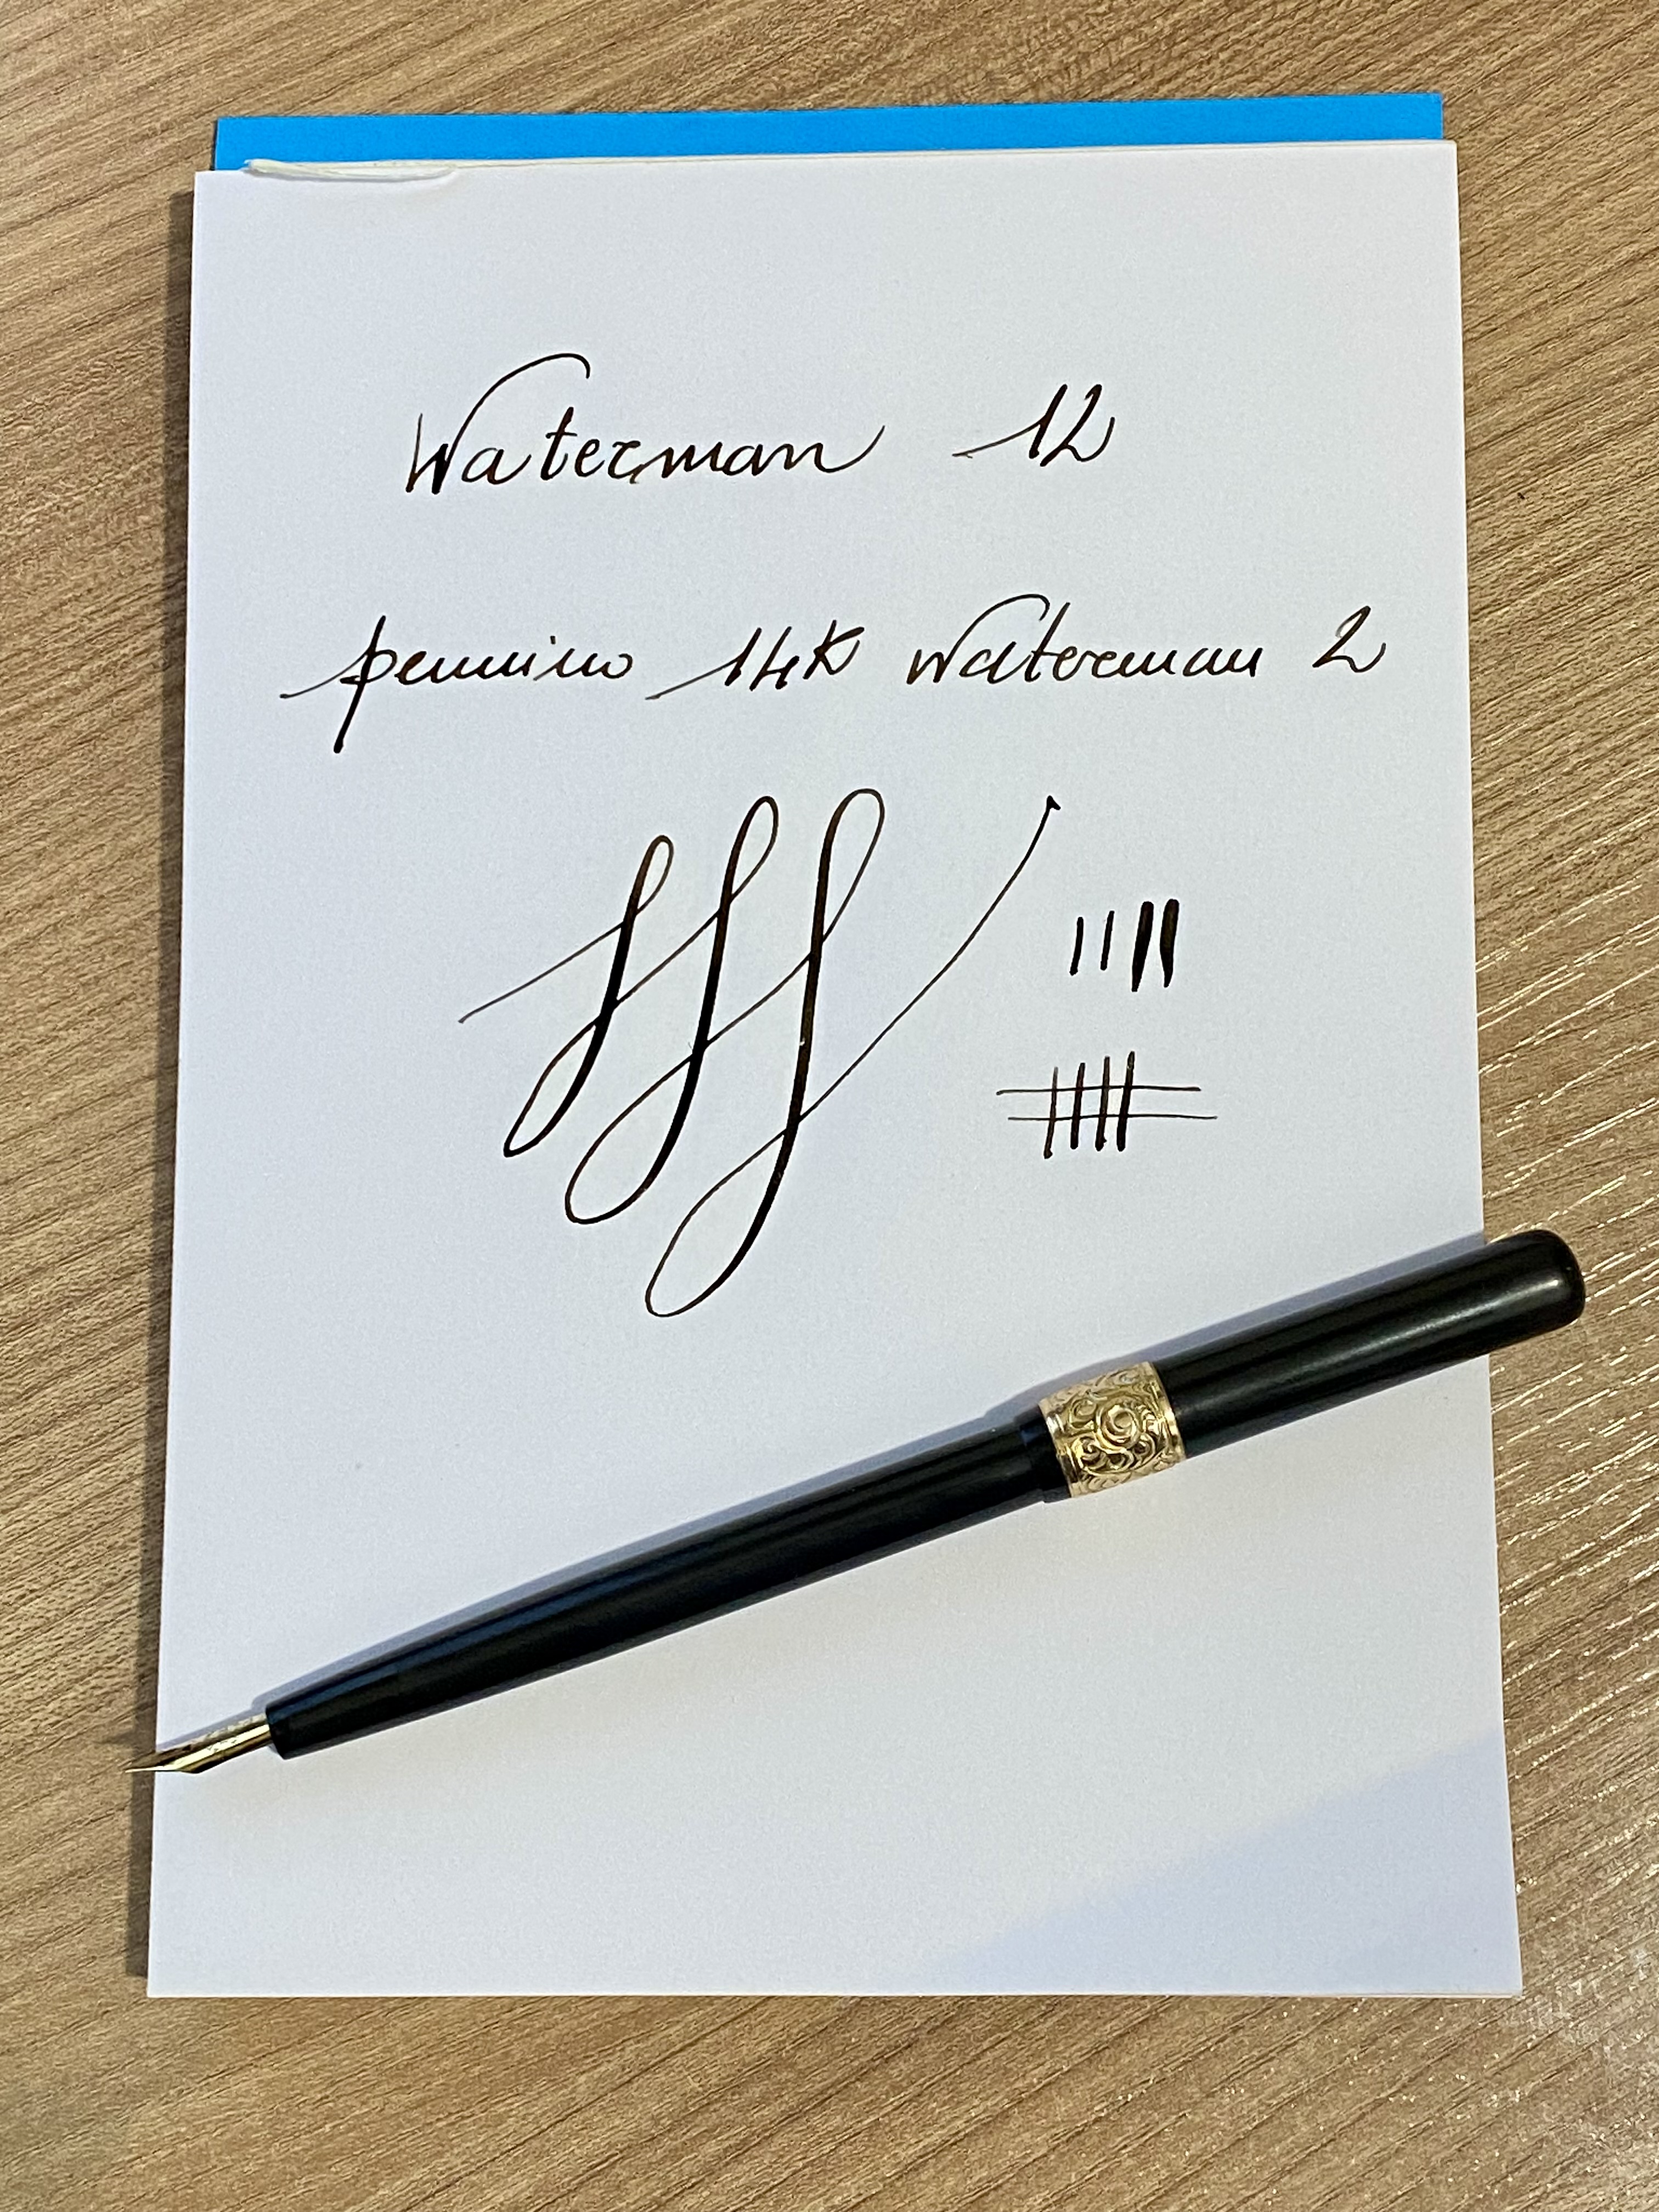 Waterman 12
pennino 14K Waterman 2